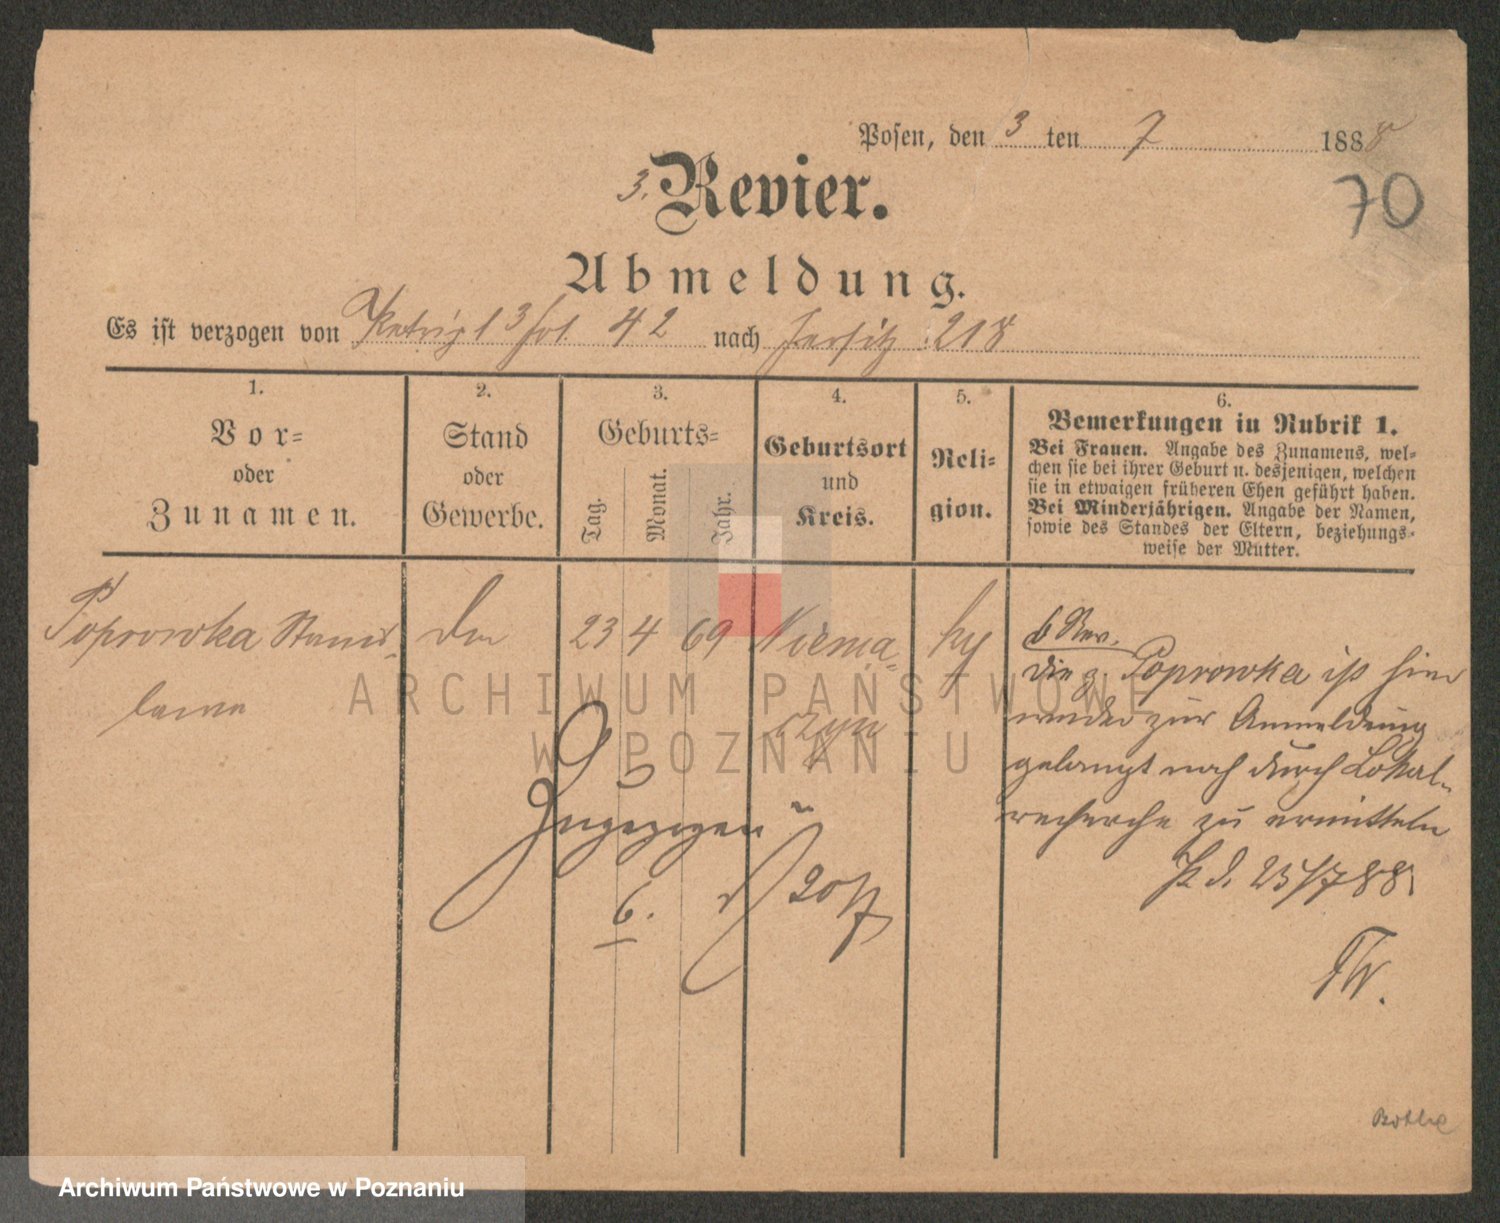 Posen, den 3 ten 7 1888
70
3. Revier.
Abmeldung.
Es ist verzogen von 42 nach Jersitz 218
1.
Vor=
oder
Zunamen.
2.
Stand
oder
Gewerbe.
3.
Geburts=
Tag.
Monat.
Jahr.
4.
Geburtsort
und
Kreis.
5.
Reli=
gion.
6.
Bemerkungen in Rubrik 1.
Bei Frauen. Angabe des Zunamens, wel=
chen sie bei ihrer Geburt u. desjenigen, welchen
sie in etwaigen früheren Ehen geführt haben.
Bei Minderjährigen. Angabe der Namen,
sowie des Standes der Eltern, beziehungs=
weise der Mutter.
Poprowka Stanis-
lawa
23 4 69
Niema=
czyn
6 Rev.
Die p. Poprowka ist hier
weder zur Anmeldung
gelangt noch durch Lokal=
recherche zu ermitteln
P. d. 25/7 88
Zugezogen
6.
20/7
Bothe
ARCHIWUM PAŃSTWOWE
W POZNANIU
Archiwum Państwowe w Poznaniu